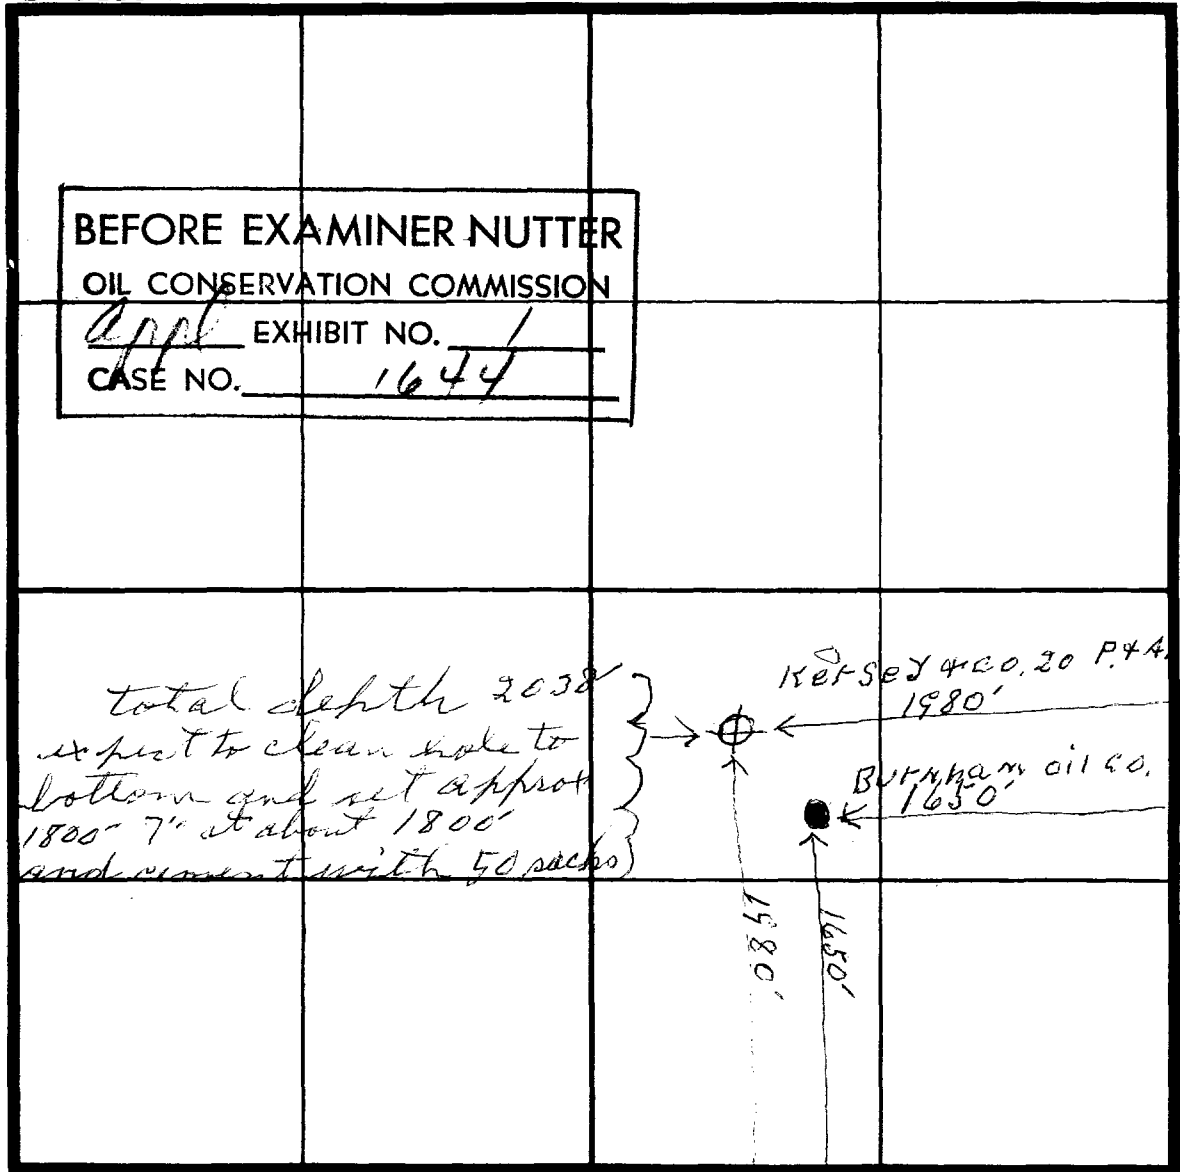 BEFORE EXAMINER NUTTER
OIL CONSERVATION COMMISSION
appl EXHIBIT NO. 1
CASE NO. 1644
Kersey & Co. 20 P.&A.
1980'
total depth 2038'
expect to clean hole to
bottom and set approx
1800' 7" at about 1800'
and cement with 50 sacks
Burnham oil co.
1650'
1980'
1650'